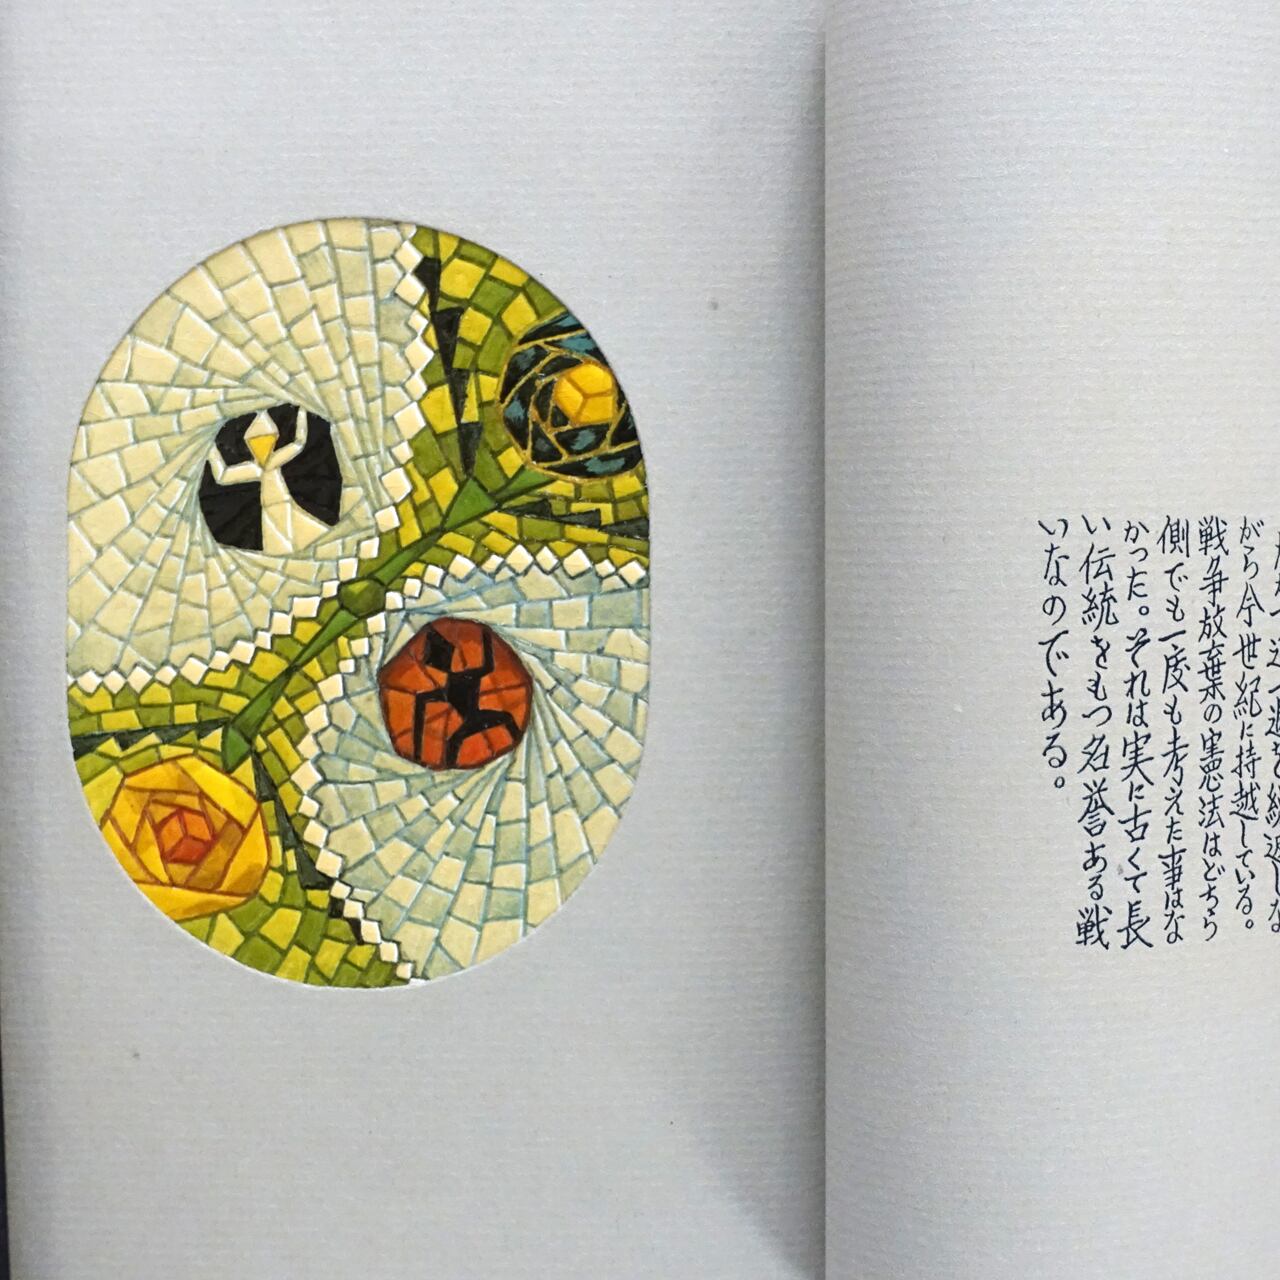 がら今世紀に持越している。
戦争放棄の憲法はどちら
側でも一度も考えた事はな
かった。それは実に古くて長
い伝統をもつ名誉ある戦
いなのである。